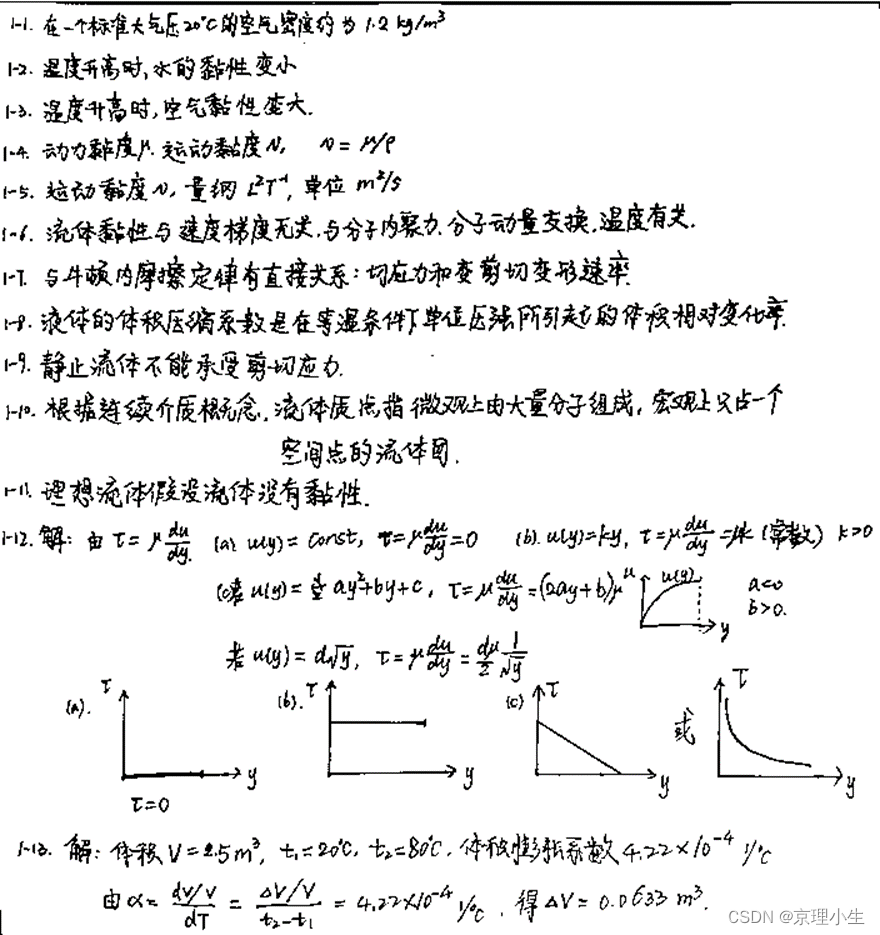 1-1. 在一个标准大气压20℃的空气密度约为 1.2 kg/m³
1-2. 温度升高时, 水的黏性变小
1-3. 温度升高时, 空气黏性变大.
1-4. 动力黏度μ. 运动黏度ν, ν = μ/ρ
1-5. 运动黏度ν, 量纲 L²T⁻¹, 单位 m²/s
1-6. 流体黏性与速度梯度无关. 与分子内聚力. 分子动量交换. 温度有关.
1-7. 与牛顿内摩擦定律有直接关系: 切应力和剪切变形速率.
1-8. 液体的体积压缩系数是在等温条件下单位压强所引起的体积相对变化率.
1-9. 静止流体不能承受剪切应力.
1-10. 根据连续介质概念, 流体质点指微观上由大量分子组成, 宏观上只占一个
空间点的流体团.
1-11. 理想流体假设流体没有黏性.
1-12. 解: 由 τ = μ du/dy. (a). u(y) = const, τ = μ du/dy = 0 (b). u(y) = ky, τ = μ du/dy = μk (常数) k>0
(c) 若 u(y) = ay²+by+c, τ = μ du/dy = (2ay+b)μ u u(y) y a<0 b>0.
若 u(y) = d√y, τ = μ du/dy = dμ/2 1/√y
(a). τ y τ=0 (b). τ y (c) τ y 或 τ y
1-13. 解: 体积 V = 2.5 m³, t₁=20℃, t₂=80℃, 体积膨胀系数 4.22×10⁻⁴ 1/℃
由 α = dV/V / dT = ΔV/V / t₂-t₁ = 4.22×10⁻⁴ 1/℃. 得 ΔV = 0.0633 m³.
CSDN @京理小生